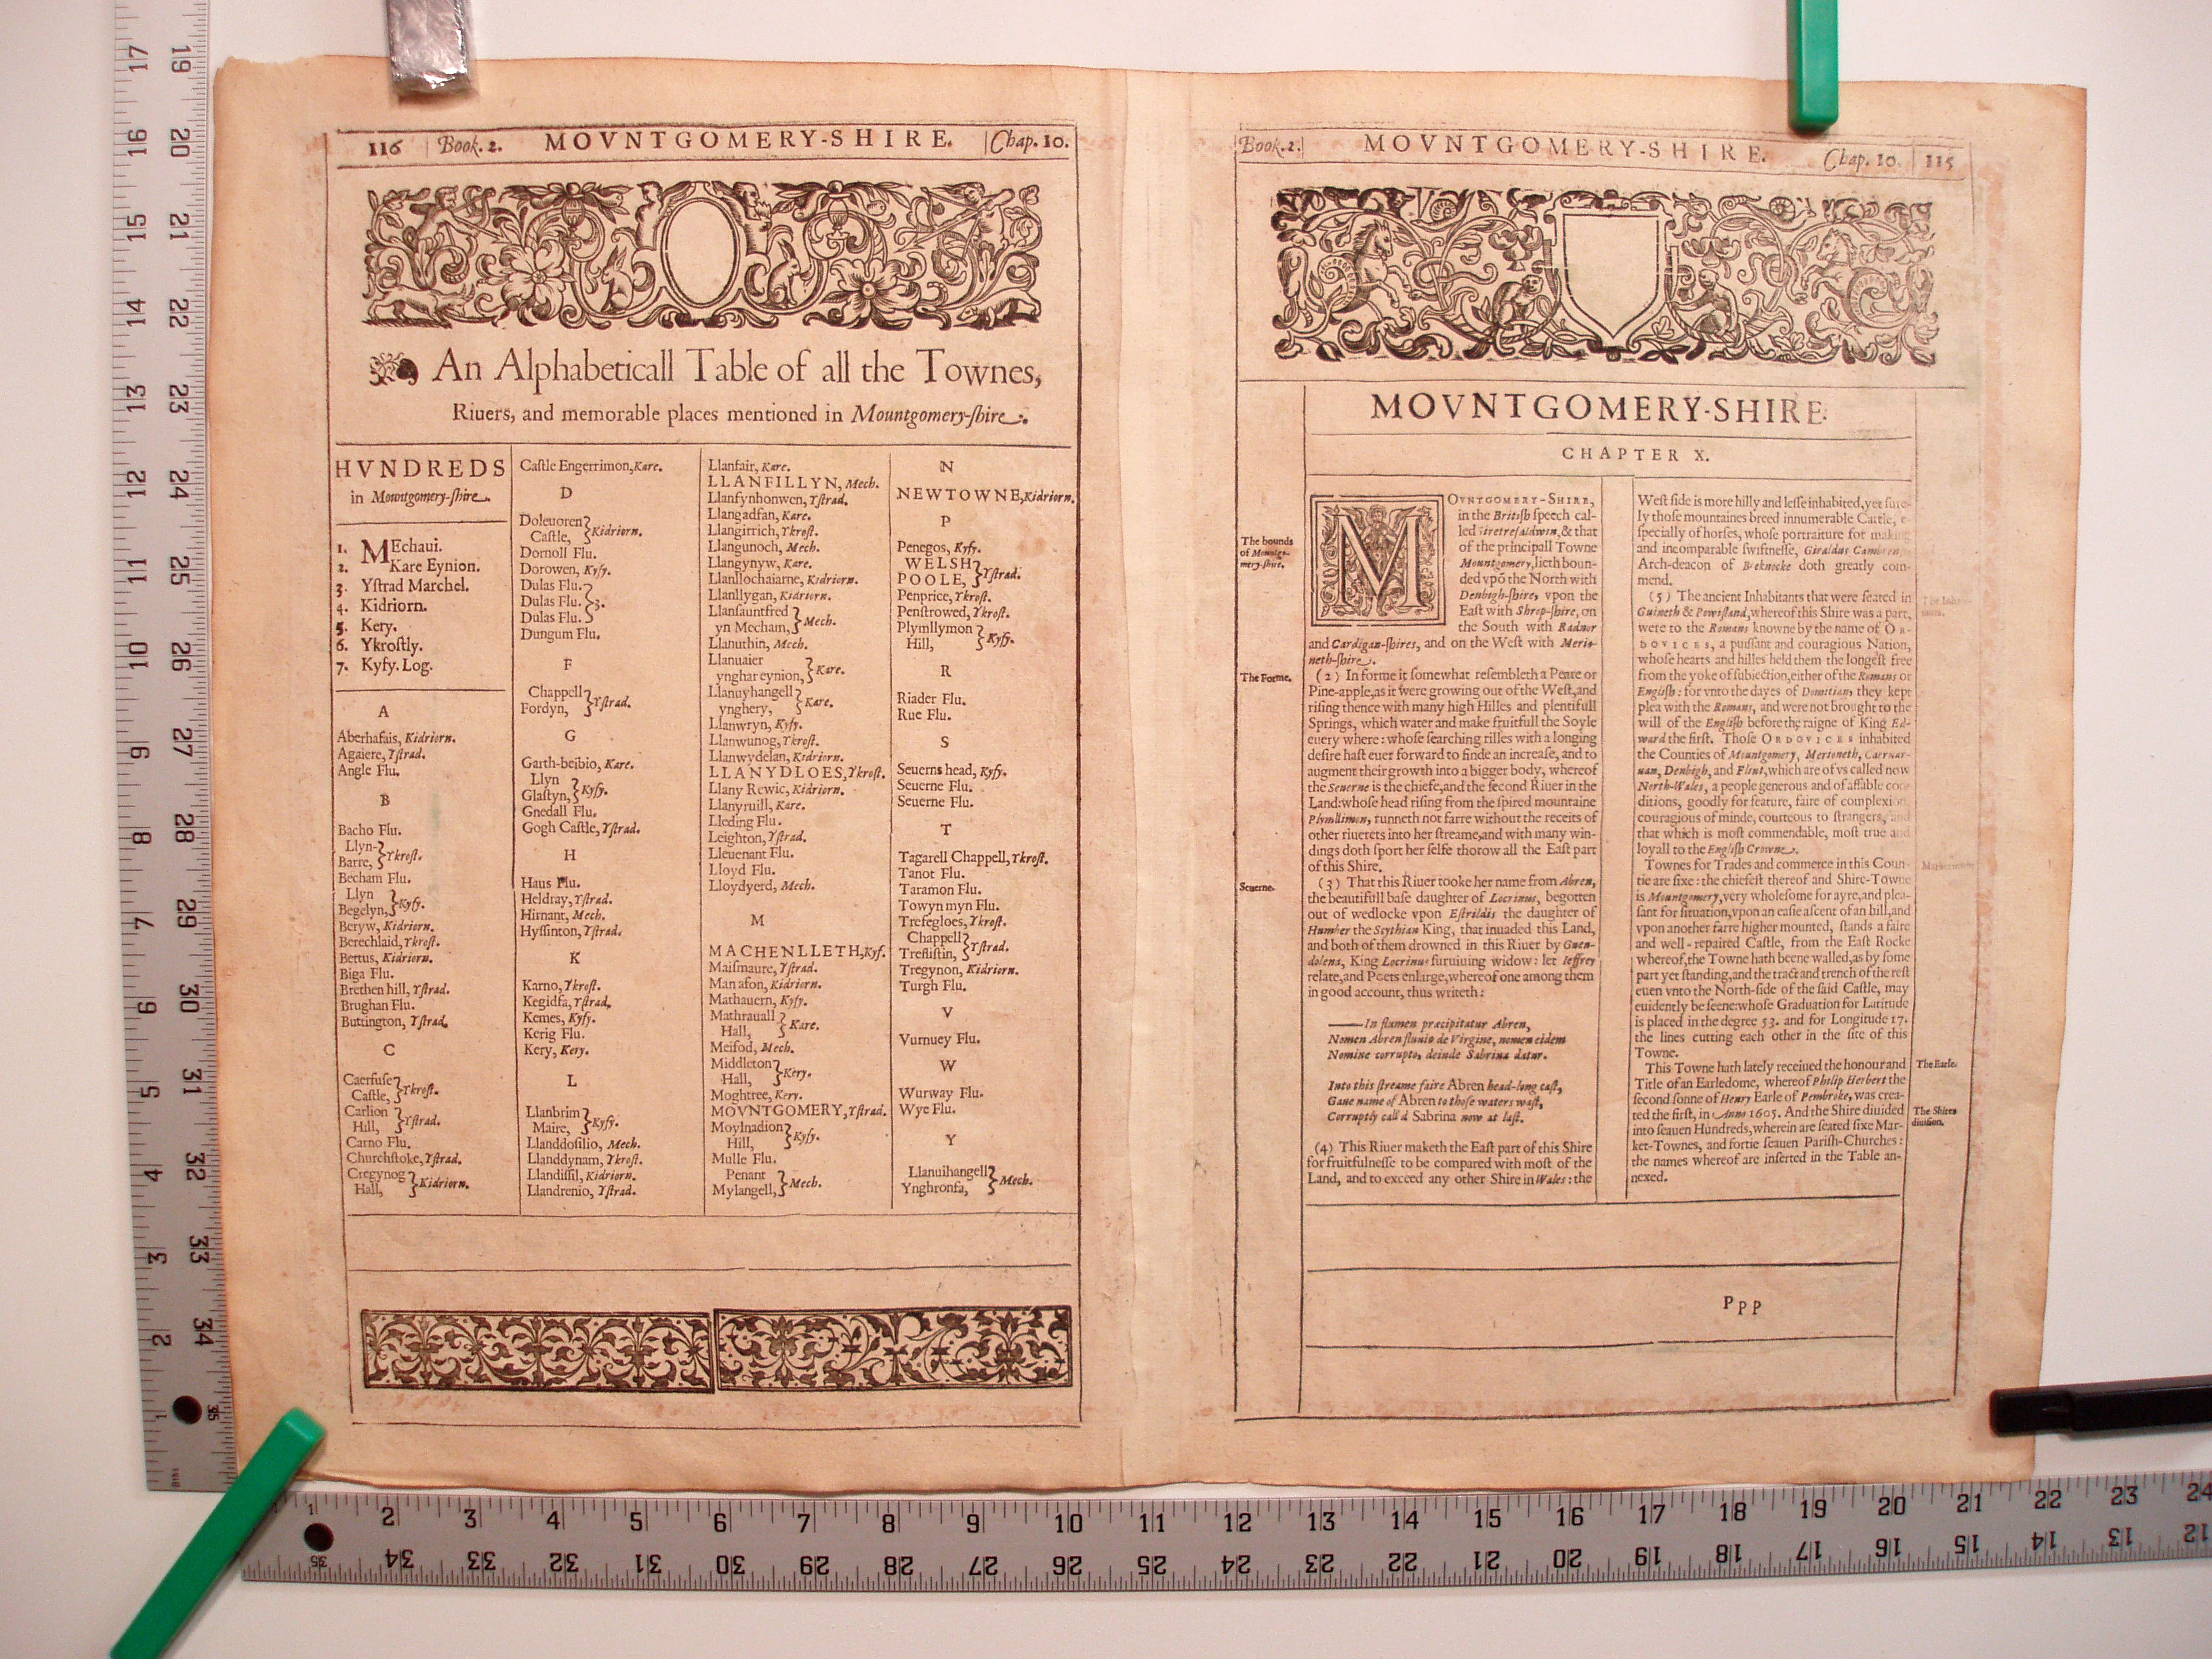 116 Book. 2. MOVNTGOMERY-SHIRE. Chap. 10.
An Alphabeticall Table of all the Townes,
Riuers, and memorable places mentioned in Mountgomery-ſhire.
HVNDREDS
in Mountgomery-ſhire.
1. MEchaui.
2. Kare Eynion.
3. Yſtrad Marchel.
4. Kidriorn.
5. Kery.
6. Ykroſtly.
7. Kyfy. Log.
A
Aberhafais, Kidriorn.
Agaiere, Yſtrad.
Angle Flu.
B
Bacho Flu.
Llyn-
Barre, } Ykroſt.
Becham Flu.
Llyn
Begelyn, } Kyfy.
Beryw, Kidriorn.
Berechlaid, Ykroſt.
Bettus, Kidriorn.
Biga Flu.
Brethen hill, Yſtrad.
Brughan Flu.
Buttington, Yſtrad.
C
Caerfuse
Caſtle, } Ykroſt.
Carlion
Hill, } Yſtrad.
Carno Flu.
Churchſtoke, Yſtrad.
Cregynog
Hall, } Kidriorn.
Caſtle Engerrimon, Kare.
D
Doleuoren
Caſtle, } Kidriorn.
Dornoll Flu.
Dorowen, Kyfy.
Dulas Flu.
Dulas Flu. } 3.
Dulas Flu.
Dungum Flu.
F
Chappell
Fordyn, } Yſtrad.
G
Garth-beibio, Kare.
Llyn
Glaſtyn, } Kyfy.
Gnedall Flu.
Gogh Caſtle, Yſtrad.
H
Haus Flu.
Heldray, Yſtrad.
Hirnant, Mech.
Hyſſinton, Yſtrad.
K
Karno, Ykroſt.
Kegidfa, Yſtrad.
Kemes, Kyfy.
Kerig Flu.
Kery, Kery.
L
Llanbrim
Maire, } Kyfy.
Llanddoſilio, Mech.
Llanddynam, Ykroſt.
Llandiſſil, Kidriorn.
Llandrenio, Yſtrad.
Llanfair, Kare.
LLANFILLYN, Mech.
Llanfynhonwen, Yſtrad.
Llangadfan, Kare.
Llangirrich, Ykroſt.
Llangunoch, Mech.
Llangynyw, Kare.
Llanllochaiarne, Kidriorn.
Llanllygan, Kidriorn.
Llanſauntfred
yn Mecham, } Mech.
Llanuthin, Mech.
Llanuaier
ynghar eynion, } Kare.
Llanuyhangell
ynghery, } Kare.
Llanwryn, Kyfy.
Llanwunog, Ykroſt.
Llanwydelan, Kidriorn.
LLANYDLOES, Ykroſt.
Llany Rewic, Kidriorn.
Llanyruill, Kare.
Lleding Flu.
Leighton, Yſtrad.
Lleuenant Flu.
Lloyd Flu.
Lloydyerd, Mech.
M
MACHENLLETH, Kyf.
Maiſmaure, Yſtrad.
Manafon, Kidriorn.
Mathauern, Kyfy.
Mathrauall
Hall, } Kare.
Meifod, Mech.
Middleton
Hall, } Kery.
Moghtree, Kery.
MOVNTGOMERY, Yſtrad.
Moylnadion
Hill, } Kyfy.
Mulle Flu.
Penant
Mylangell, } Mech.
N
NEWTOWNE, Kidriorn.
P
Penegos, Kyfy.
WELSH
POOLE, } Yſtrad.
Penprice, Ykroſt.
Penſtrowed, Ykroſt.
Plymllymon
Hill, } Kyfy.
R
Riader Flu.
Rue Flu.
S
Seuerns head, Kyfy.
Seuerne Flu.
Seuerne Flu.
T
Tagarell Chappell, Ykroſt.
Tanot Flu.
Taramon Flu.
Towyn myn Flu.
Trefegloes, Ykroſt.
Chappell
Treſliſtin, } Yſtrad.
Tregynon, Kidriorn.
Turgh Flu.
V
Vurnuey Flu.
W
Wurway Flu.
Wye Flu.
Y
Llanuihangell
Ynghronfa, } Mech.
Book. 2. MOVNTGOMERY-SHIRE. Chap. 10. 115
MOVNTGOMERY-SHIRE.
CHAPTER X.
The bounds
of Mountgo-
mery-ſhire.
MOVNTGOMERY-SHIRE,
in the Britiſh ſpeech cal-
led & that
of the principall Towne
Mountgomery, lieth boun-
ded vpō the North with
Denbigh-ſhire, vpon the
Eaſt with Shrop-ſhire, on
the South with Radnor
and Cardigan-ſhires, and on the Weſt with Meri-
neth-ſhire.
The Forme.
(2) In forme it ſomewhat reſembleth a Peare or
Pine-apple, as it were growing out of the Weſt, and
riſing thence with many high Hilles and plentifull
Springs, which water and make fruitfull the Soyle
euery where: whoſe ſearching rilles with a longing
deſire haſt euer forward to finde an increaſe, and to
augment their growth into a bigger body, whereof
the Seuerne is the chiefe, and the ſecond Riuer in the
Land: whoſe head riſing from the ſpired mountaine
Plymllimon, runneth not farre without the receits of
other riuerets into her ſtreame, and with many win-
dings doth ſport her ſelfe thorow all the Eaſt part
of this Shire.
Seuerne.
(3) That this Riuer tooke her name from Abren,
the beautifull baſe daughter of Locrinus, begotten
out of wedlocke vpon Eſtrildis the daughter of
Humber the Scythian King, that inuaded this Land,
and both of them drowned in this Riuer by Guen-
dolena, King Locrinus ſuruiuing widow: let Ieffrey
relate, and Poets enlarge, whereof one among them
in good account, thus writeth:
——In flumen præcipitatur Abren,
Nomen Abren fluuio de Virgine, nomen eidem
Nomine corrupto, deinde Sabrina datur.
Into this ſtreame faire Abren head-long caſt,
Gaue name of Abren to thoſe waters waſt,
Corruptly call'd Sabrina now at laſt.
(4) This Riuer maketh the Eaſt part of this Shire
for fruitfulneſſe to be compared with moſt of the
Land, and to exceed any other Shire in Wales: the
Weſt ſide is more hilly and leſſe inhabited, yet ſure-
ly thoſe mountaines breed innumerable Cattle, e-
ſpecially of horſes, whoſe portraiture for making
and incomparable ſwiftneſſe, Giraldus Cambren
Arch-deacon of Breknocke doth greatly com-
mend.
(5) The ancient Inhabitants that were ſeated in
Guineth & Powiſland, whereof this Shire was a part,
were to the Romans knowne by the name of OR-
DOVICES, a puiſſant and couragious Nation,
whoſe hearts and hilles held them the longeſt free
from the yoke of ſubiection, either of the Romans or
Engliſh: for vnto the dayes of Domitian, they kept
plea with the Romans, and were not brought to the
will of the Engliſh before the raigne of King Ed-
ward the firſt. Thoſe ORDOVICES inhabited
the Counties of Mountgomery, Merioneth, Caernar-
uan, Denbigh, and Flint, which are of vs called now
North-Wales, a people generous and of affable con-
ditions, goodly for feature, faire of complexion,
couragious of minde, courteous to ſtrangers, and
that which is moſt commendable, moſt true and
loyall to the Engliſh Crowne.
Townes for Trades and commerce in this Coun-
tie are ſixe: the chiefeſt thereof and Shire-Towne
is Mountgomery, very wholeſome for ayre, and plea-
ſant for ſituation, vpon an eaſie aſcent of an hill, and
vpon another farre higher mounted, ſtands a faire
and well-repaired Caſtle, from the Eaſt Rocke
whereof, the Towne hath beene walled, as by ſome
part yet ſtanding, and the tract and trench of the reſt
euen vnto the North-ſide of the ſaid Caſtle, may
euidently be ſeene: whoſe Graduation for Latitude
is placed in the degree 53. and for Longitude 17.
the lines cutting each other in the ſite of this
Towne.
The Earle.
This Towne hath lately receiued the honour and
Title of an Earledome, whereof Philip Herbert the
ſecond ſonne of Henry Earle of Pembroke, was crea-
ted the firſt, in Anno 1605. And the Shire diuided
The Shires
diuiſion.
into ſeauen Hundreds, wherein are ſeated ſixe Mar-
ket-Townes, and fortie ſeauen Pariſh-Churches:
the names whereof are inſerted in the Table an-
nexed.
Ppp
1 2 3 4 5 6 7 8 9 10 11 12 13 14 15 16 17 18 19 20 21 22 23 24
35 34 33 32 31 30 29 28 27 26 25 24 23 22 21 20 19 18 17 16 15 14 13 12
17 16 15 14 13 12 11 10 9 8 7 6 5 4 3 2 1
19 20 21 22 23 24 25 26 27 28 29 30 31 32 33 34 35